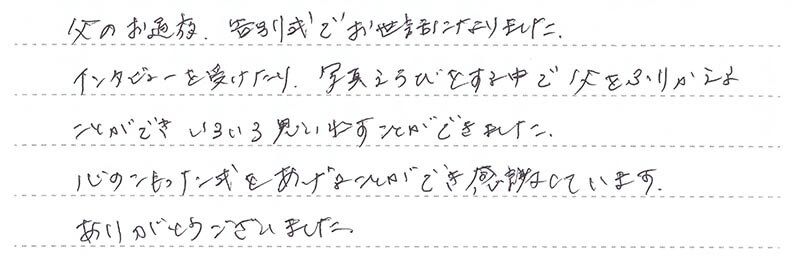 父のお通夜、告別式でお世話になりました。
インタビューを受けたり、写真えらびをする中で父をふりかえる
ことができ いろいろ思い出すことができました。
心のこもった式をあげることができ感謝しています。
ありがとうございました。